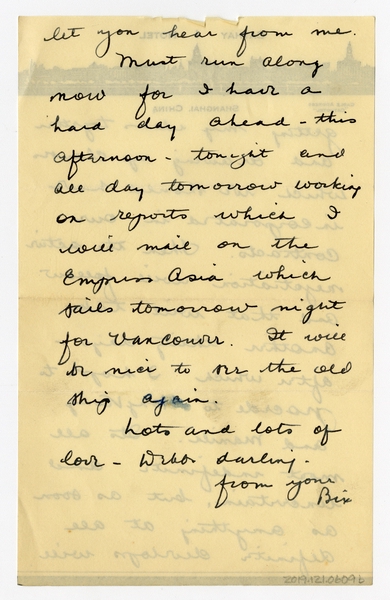 let you hear from me.
Must run along
now for I have a
hard day ahead - this
afternoon - tonight and
all day tomorrow working
on reports which I
will mail on the
Empress Asia which
sails tomorrow night
for Vancouver. It will
be nice to see the old
ship again.
Lots and lots of
love - Webb darling.
from your
Bix
2019.121.0609b